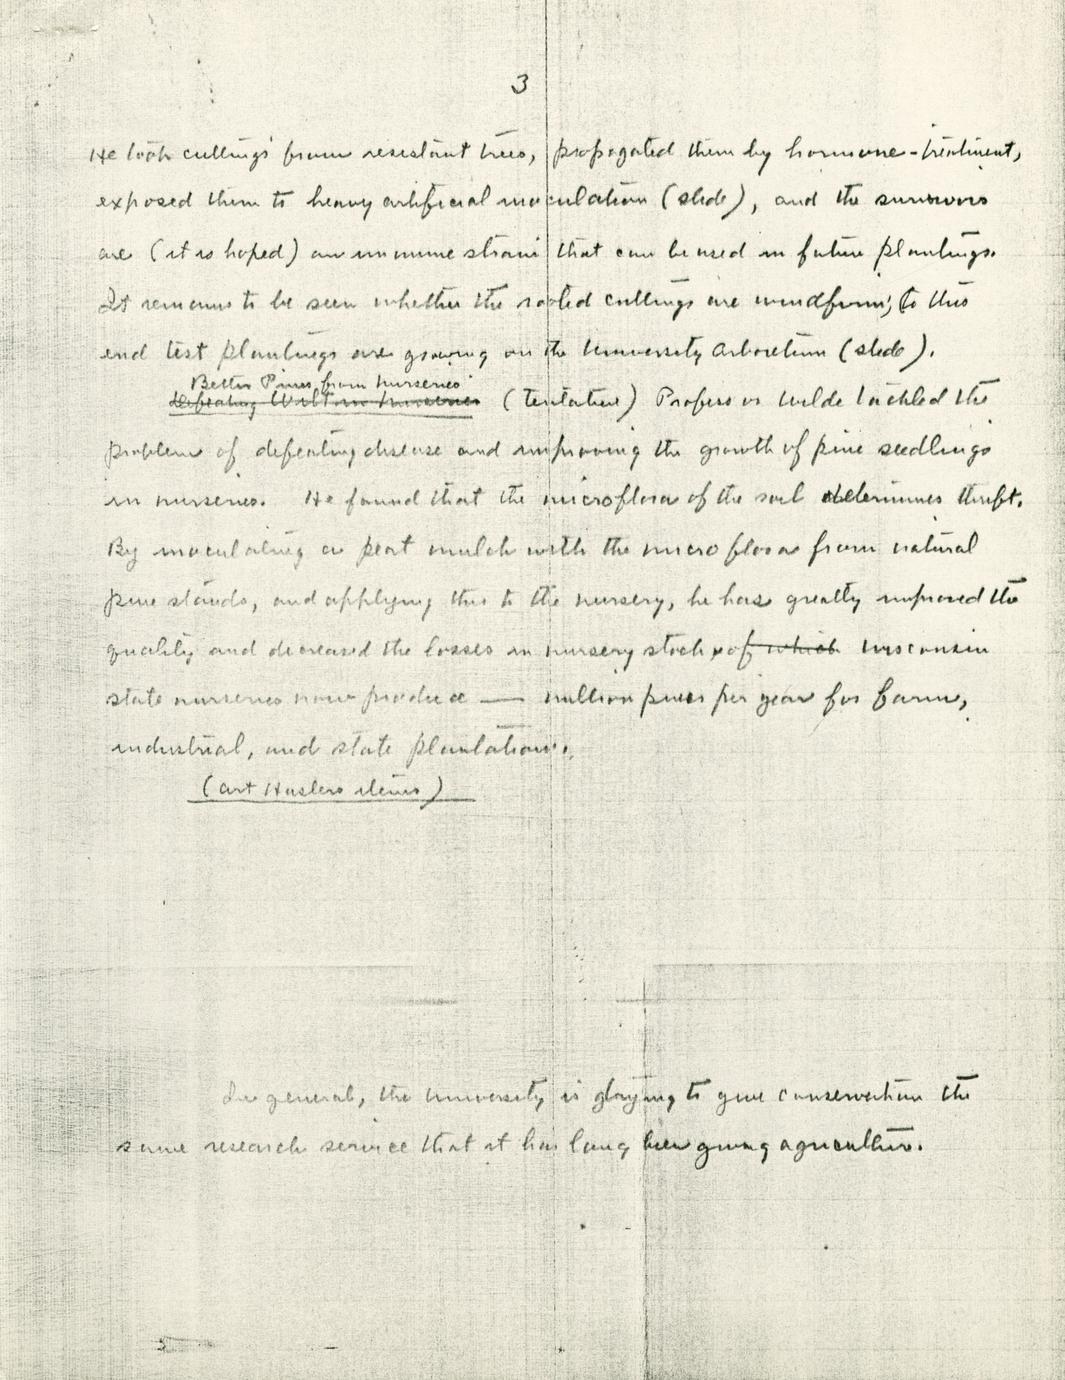 3
He took cuttings from resistant trees, propagated them by hormone-treatment,
exposed them to heavy artificial inoculation (slide), and the survivors
are (it is hoped) an immune strain that can be used in future plantings.
It remains to be seen whether the rooted cuttings are windfirm; to this
end test plantings are growing on the University Arboretum (slide).
Better Pines from Nurseries
Defeating Wilt in Nurseries (tentative) Professor Wilde tackled the
problem of defeating disease and improving the growth of pine seedlings
in nurseries. He found that the microflora of the soil determines thrift.
By inoculating a peat mulch with the microflora from natural
pine stands, and applying this to the nursery, he has greatly improved the
quality and decreased the losses in nursery stock, of which Wisconsin
state nurseries now produce — million pines per year for farm,
industrial, and state plantations.
(Art Haslers items)
In general, the University is trying to give conservation the
same research service that it has long been giving agriculture.